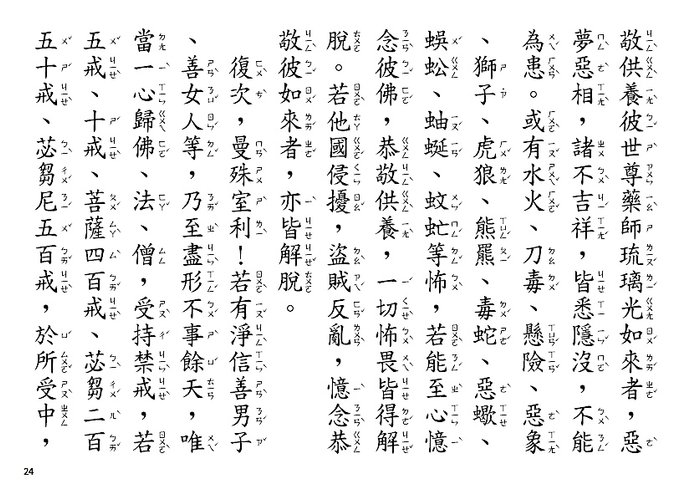 敬供養彼世尊藥師琉璃光如來者，惡
夢惡相，諸不吉祥，皆悉隱沒，不能
為患。或有水火、刀毒、懸險、惡象
、獅子、虎狼、熊羆、毒蛇、惡蠍、
蜈蚣、蚰蜒、蚊虻等怖，若能至心憶
念彼佛，恭敬供養，一切怖畏皆得解
脫。若他國侵擾，盜賊反亂，憶念恭
敬彼如來者，亦皆解脫。
復次，曼殊室利！若有淨信善男子
、善女人等，乃至盡形不事餘天，唯
當一心歸佛、法、僧，受持禁戒，若
五戒、十戒、菩薩四百戒、苾芻二百
五十戒、苾芻尼五百戒，於所受中，
24